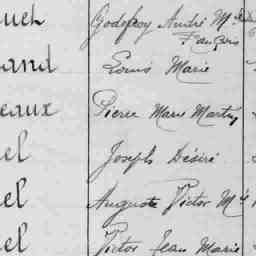 uch Godefroy André Mie
François
and Louis Marie
eaux Pierre Marie Martin
el Joseph Désiré
el Auguste Victor Mie
el Victor Jean Marie